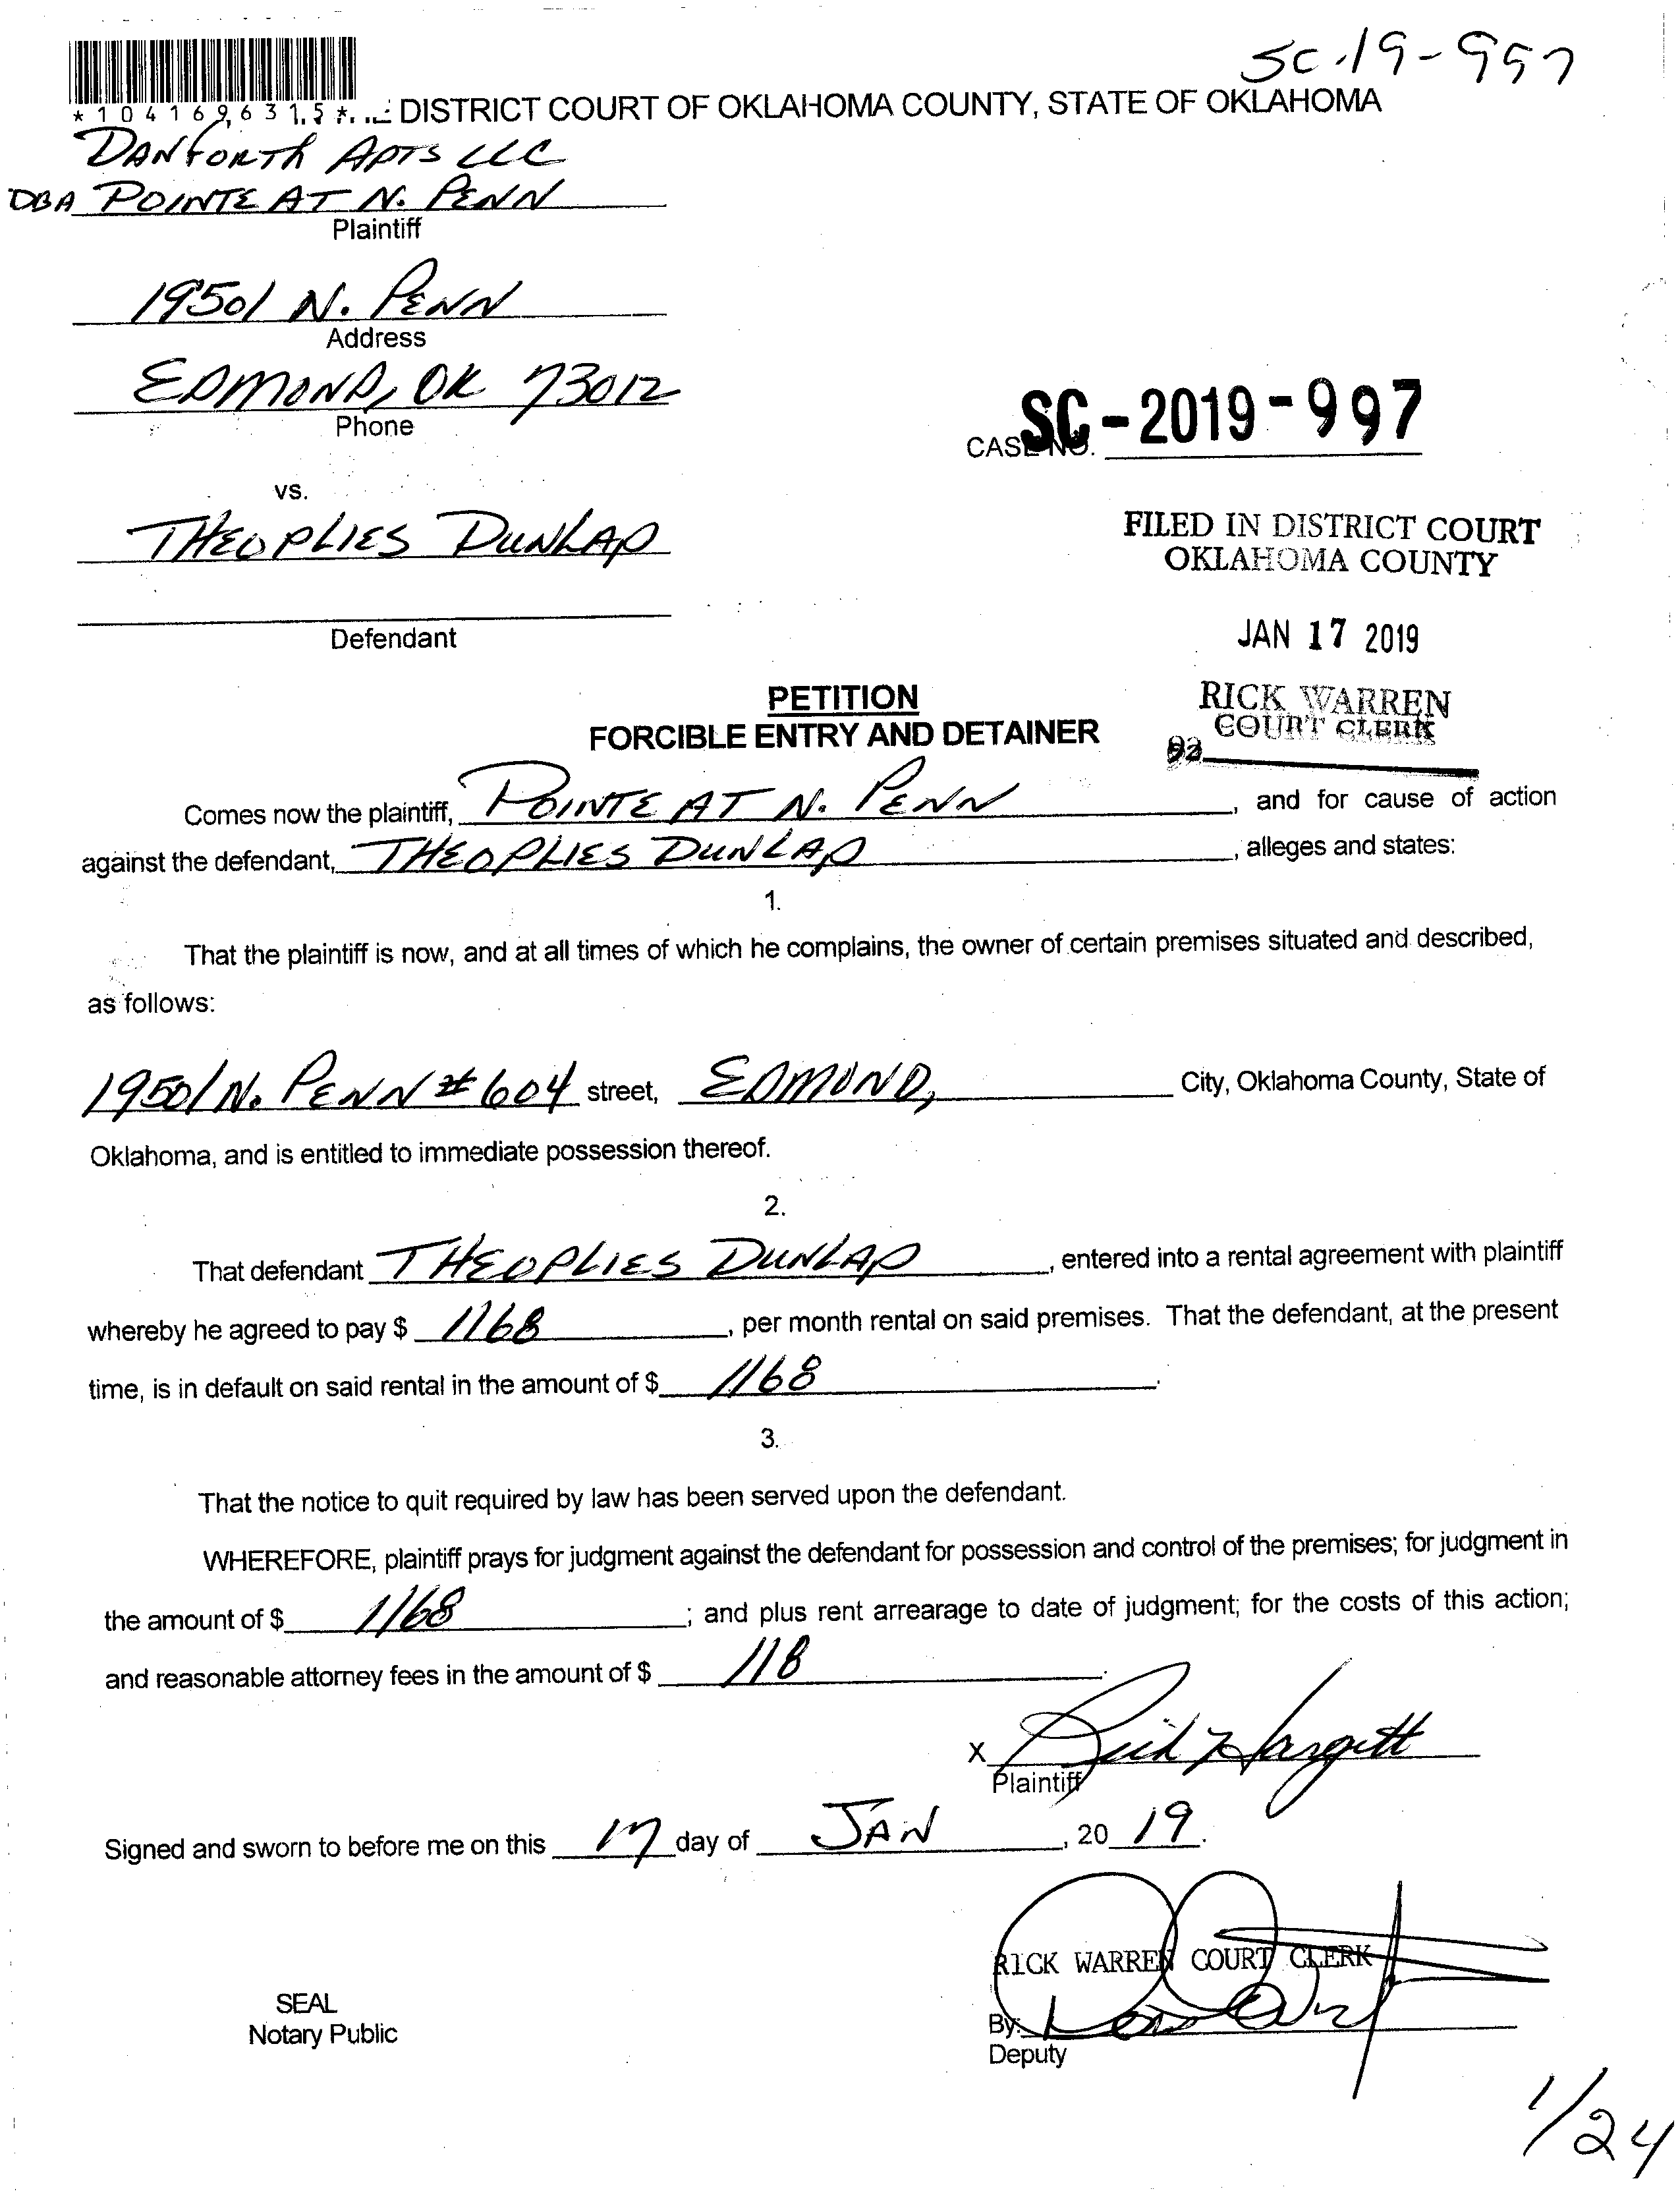 SC-19-997
*1041696315* DISTRICT COURT OF OKLAHOMA COUNTY, STATE OF OKLAHOMA
DANFORTH APTS LLC
DBA POINTE AT N. PENN
Plaintiff
19501 N. PENN
Address
EDMOND, OK 73012
Phone
CASE NO. SC-2019-997
vs.
THEOPLIES DUNLAP
FILED IN DISTRICT COURT
OKLAHOMA COUNTY
Defendant
JAN 17 2019
PETITION
RICK WARREN
COURT CLERK
FORCIBLE ENTRY AND DETAINER
Comes now the plaintiff, POINTE AT N. PENN, and for cause of action
against the defendant, THEOPLIES DUNLAP, alleges and states:
1.
That the plaintiff is now, and at all times of which he complains, the owner of certain premises situated and described,
as follows:
19501 N. PENN #604 street, EDMOND, City, Oklahoma County, State of
Oklahoma, and is entitled to immediate possession thereof.
2.
That defendant THEOPLIES DUNLAP, entered into a rental agreement with plaintiff
whereby he agreed to pay $ 1168, per month rental on said premises. That the defendant, at the present
time, is in default on said rental in the amount of $ 1168.
3.
That the notice to quit required by law has been served upon the defendant.
WHEREFORE, plaintiff prays for judgment against the defendant for possession and control of the premises; for judgment in
the amount of $ 1168; and plus rent arrearage to date of judgment; for the costs of this action;
and reasonable attorney fees in the amount of $ 118.
X
Plaintiff
Signed and sworn to before me on this 17 day of JAN, 20 19.
RICK WARREN COURT CLERK
SEAL
Notary Public
By:
Deputy
1/24